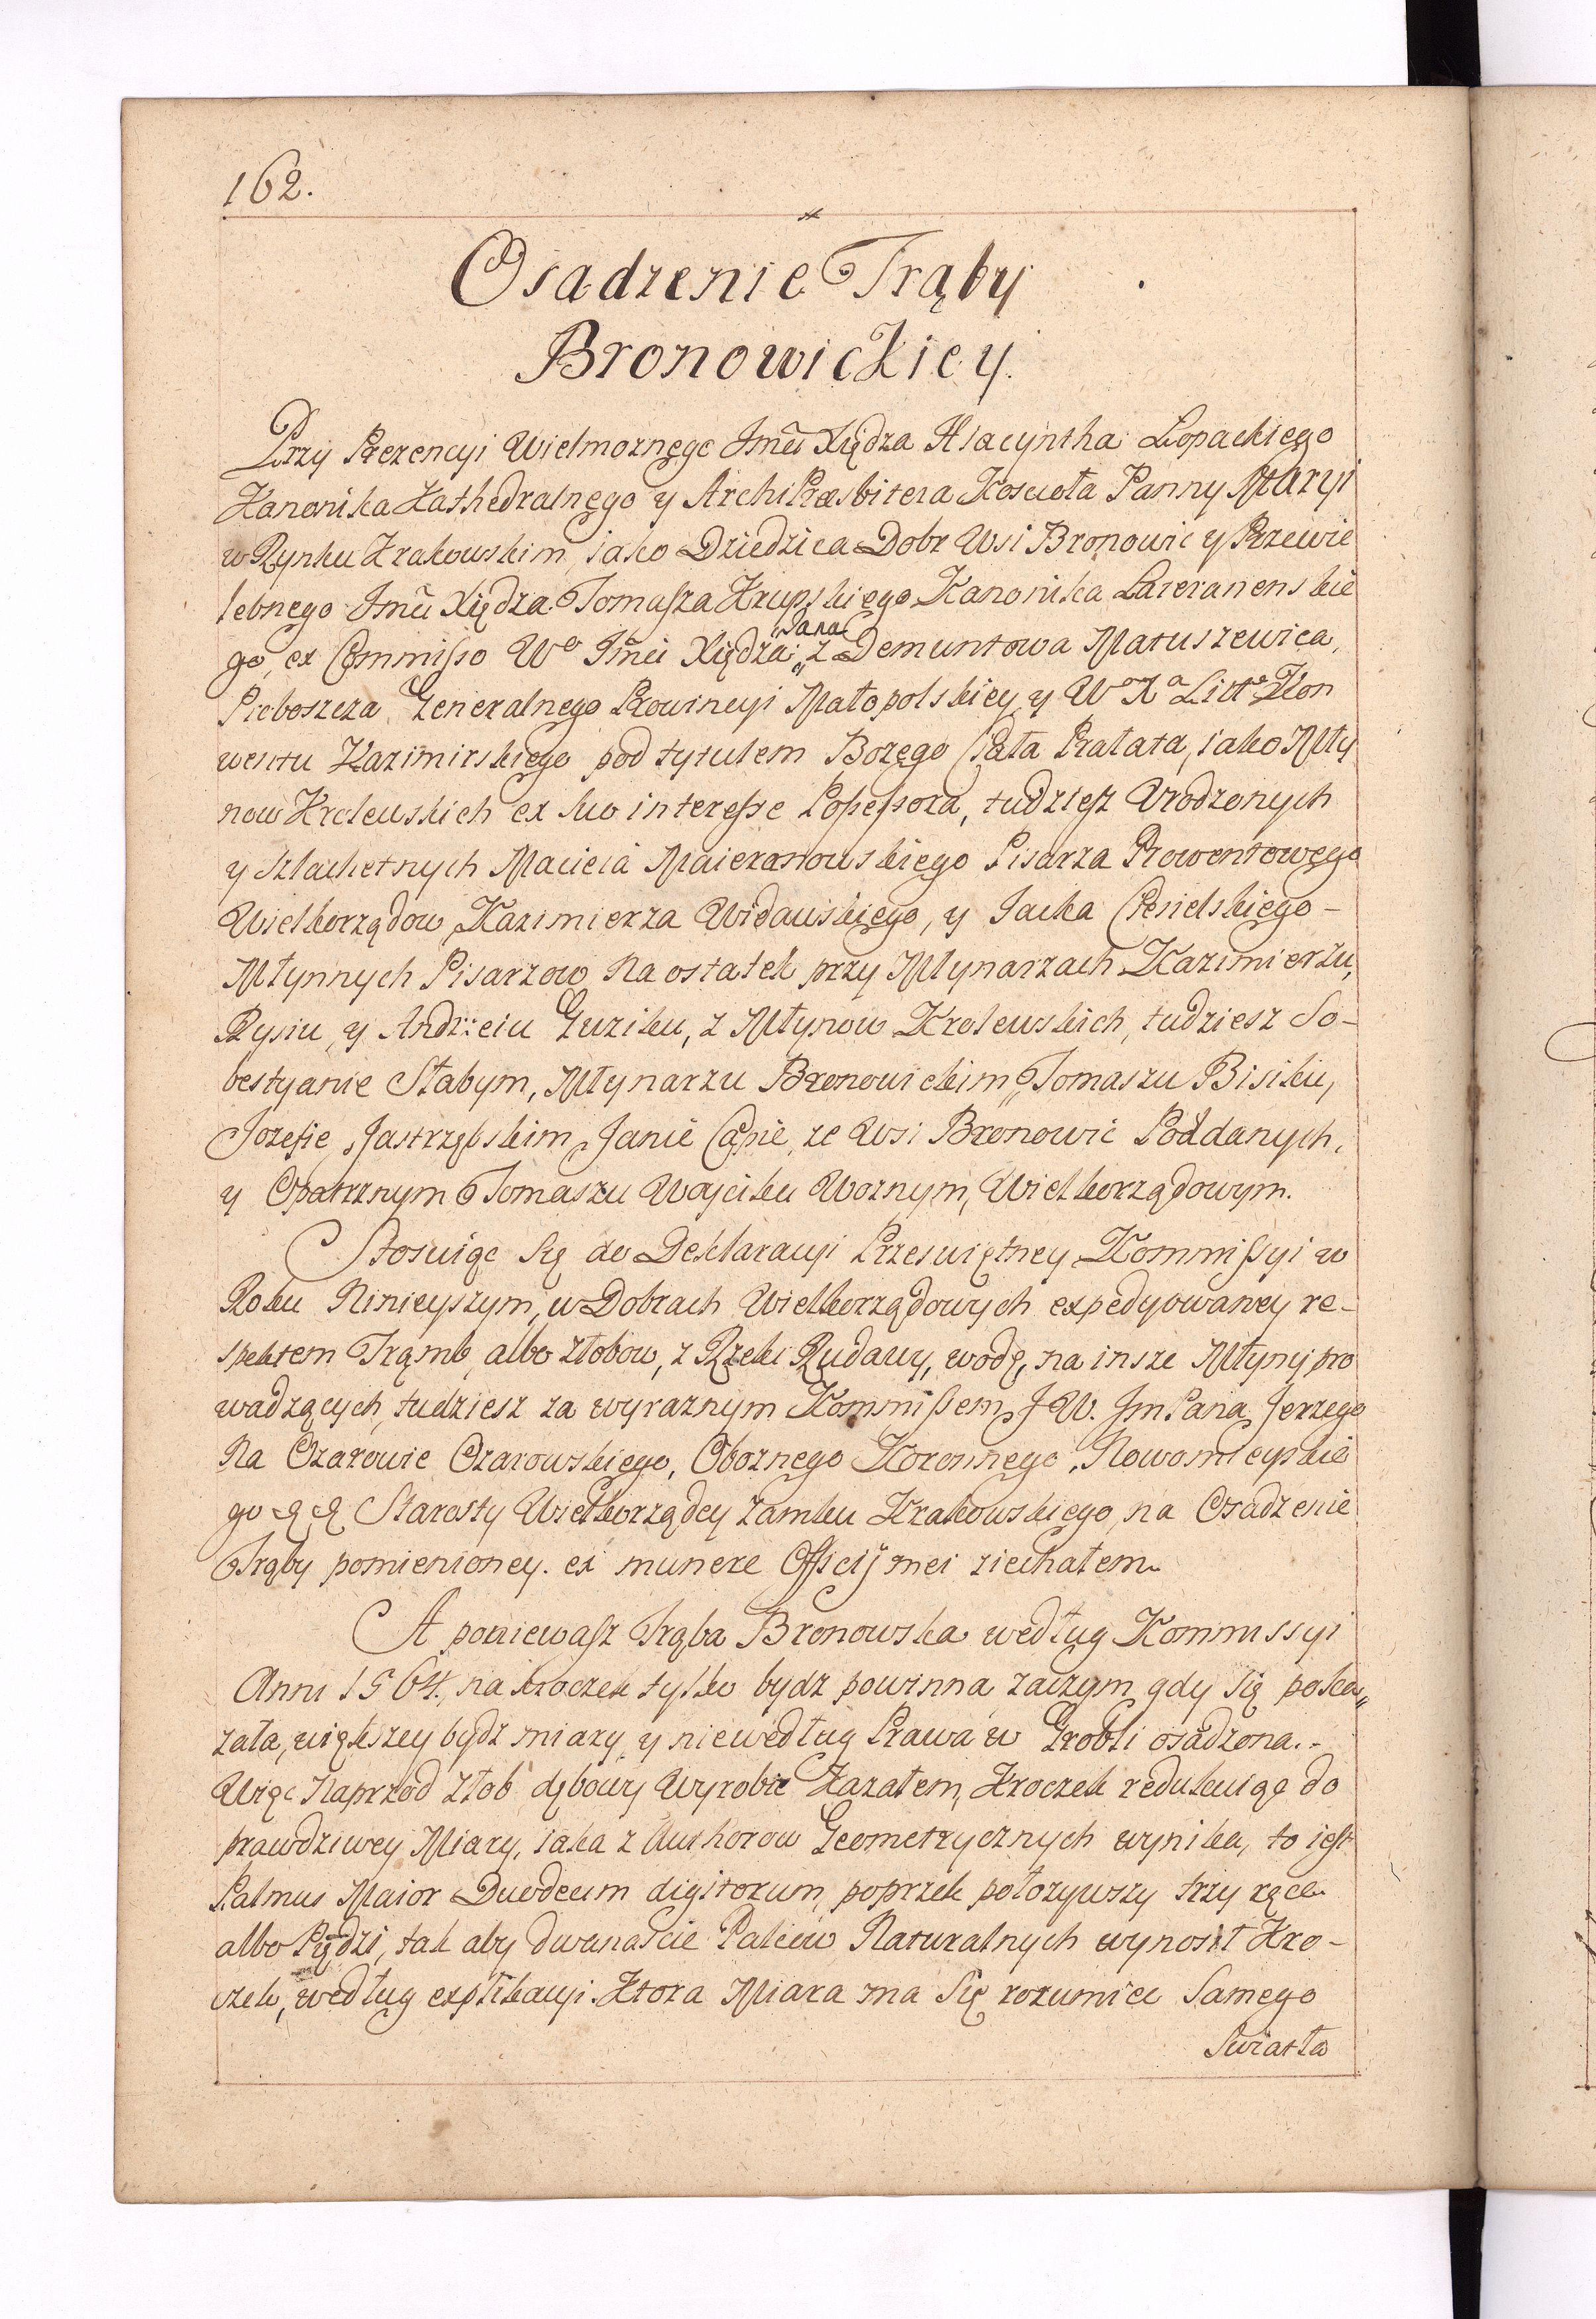 162.
Osadzenie Trąby
Bronowickiey.
Przy Prezencyi Wielmoznęgo Jmci Xiędza Hiacyntha Łopackięgo
Kanonika Kathedralnęgo y ArchiPræsbitera Koscioła Panny Maryi
w Rynku Krakowskim iako Dziedzica Dobr Wsi Bronowic y Przewie
lebnego Jmci Xiędza Tomaſza Krupskięgo Kanonika Lateranenskie
go, ex Commiſso Wo Jmci Xiędza „Jana„ z Demuntowa Matuszewica,
Proboszcza Generalnego Prowincyi Małopolskiey y Wo Xa Litto Kon
wentu Kazimirskiego pod tytułem Bozęgo Ciała Prałata, iako Mły
now Krolewskich ex suo intereſse Poſseſsora, tudzieſz Urodzonych
y Szlachetnych Macieia Maieranowskiego Pisarza Prowentowęgo
Wielkorządow, Kazimierza Widawskięgo, y Jacka Ciesielskięgo -
Młynnych Pisarzow, Na ostatek przy Młynarzach Kazimierzu,
Rysiu, y Andrzeiu Guziku, z Młynow Krolewskich, tudziesz So-
bestyanie Słabym, Młynarzu Bronowickim, Tomaszu Bisiku,
Jozefie Jastrzębskim, Janie Capie, ze Wsi Bronowic Poddanych,
y Opatrznym Tomaszu Woyciku Woznym, Wielkorządowym.
Stosuiąc Się do Deklaracyi Przeswiętney Kommiſsyi w
Roku Ninieyszym, w Dobrach Wielkorządowych expedyowaney re-
spektem Trąmb, albo złobow, z Rzeki Rudawy, wodę, na insze Młyny pro
wadzących, tudziesz za wyraznym Kommiſsem JW. Jm Pana Jerzego
Na Ozarowie Ozarowskięgo, Oboznego Koronnego, Nowomieyskie
go &c &c Starosty Wielkorządcy Zamku Krakowskiego, na Osadzenie
Trąby pomienioney. ex munere Officij mei ziechałem.
A poniewaſz Trąba Bronowska według Kommissyi
Anni 1564. na kroczek tylko bydz powinna zaczym gdy się poka„
zała, większey bydz miary, y niewedług Prawa w Grobli osadzona. -
Więc Naprzod Złob dębowy Wyrobic Kazałem, Kroczek redukuiąc do
prawdziwey Miary, iaka z Authorow Geometrycznych wynika, to ieſt
Palmus Maior Duodecim digitorum, poprzek połozywszy trzy ręce
albo Piędzi, tak aby dwanascie Palcow Naturalnych wynosił Kro-
czek, według explikacyi. Ktora Miara ma Się rozumiec Samego
Swiatła